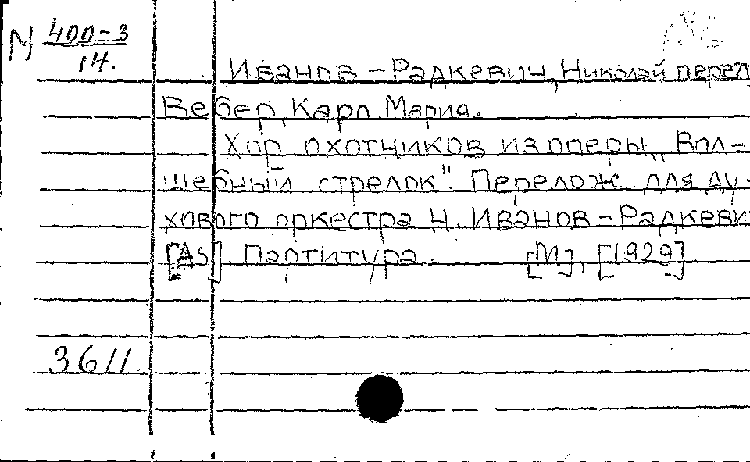 N 400-3
14.
Иванов-Радкевич, Николай перел
Вебер, Карл Мариа.
Хор охотчиков из оперы „Вол-
шебный стрелок". Перелож. для ду-
хового оркестра Н. Иванов-Радкеви
[As] Партитура. [М], [1929]
3611